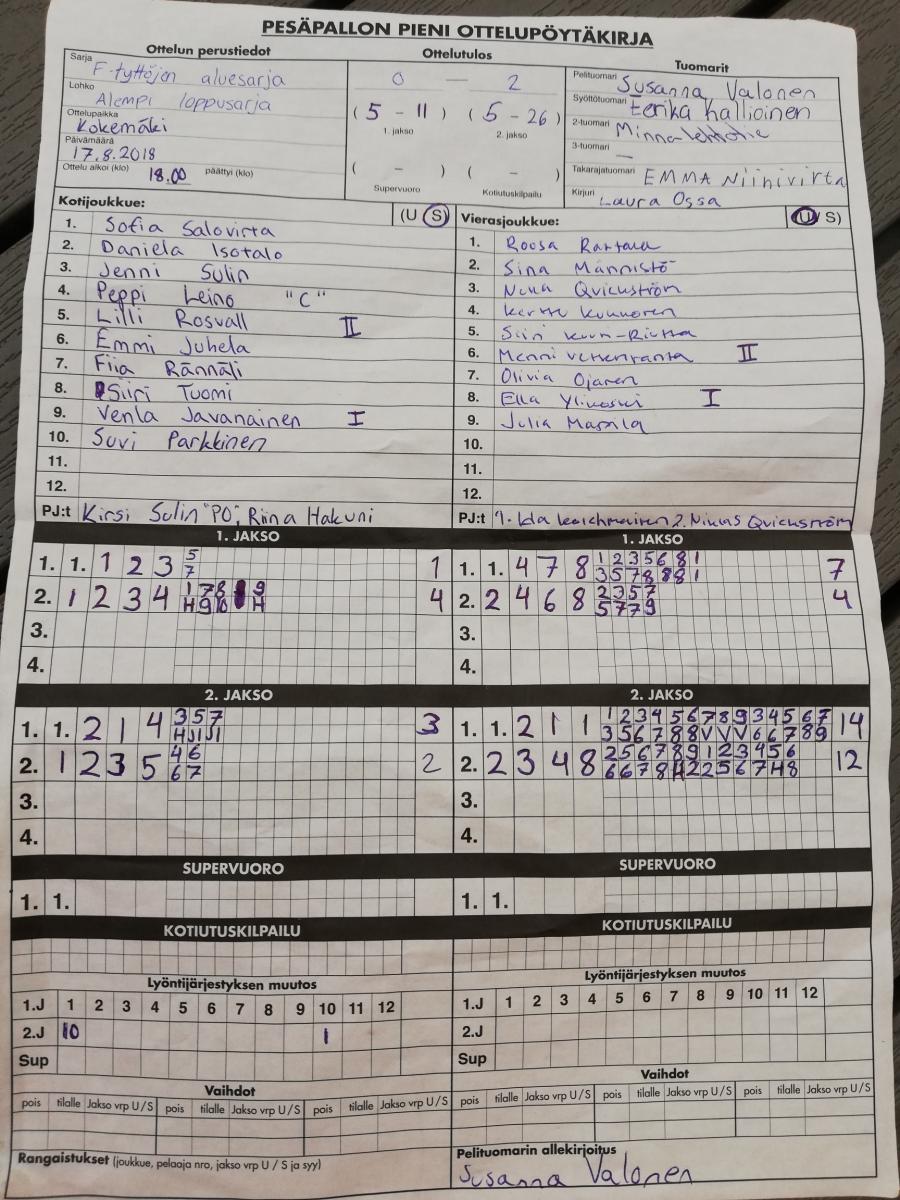 PESÄPALLON PIENI OTTELUPÖYTÄKIRJA
Ottelun perustiedot
Sarja F-tyttöjen aluesarja
Lohko Alempi loppusarja
Ottelupaikka Kokemäki
Päivämäärä 17.8.2018
Ottelu alkoi (klo) 18.00 päättyi (klo)
Ottelutulos
0 — 2
( 5 - 11 ) ( 5 - 26 )
1. jakso 2. jakso
( - ) ( - )
Supervuoro Kotiutuskilpailu
Tuomarit
Pelituomari Susanna Valonen
Syöttötuomari Eerika Hallioinen
2-tuomari Minna
3-tuomari —
Takarajatuomari EMMA Niinivirta
Kirjuri Laura Ossa
Kotijoukkue: (U S)
1. Sofia Salovirta
2. Daniela Isotalo
3. Jenni Sulin
4. Peppi Leino "C"
5. Lilli Rosvall II
6. Emmi Juhela
7. Fiia Rännäli
8. Siiri Tuomi
9. Venla Javanainen I
10. Suvi Parkkinen
11.
12.
PJ:t Kirsi Sulin "PO", Riina Hakuni
Vierasjoukkue: (U S)
1. Roosa Rantala
2. Sina Männistö
3. Noora Qvickström
4. Kunnonen
5. Siiri
6. Menni II
7. Olivia Ojanen
8. Ella Ylikoski I
9. Julia Mattila
10.
11.
12.
PJ:t 1. Ida 2. Niklas Qvickström
1. JAKSO
1. 1. 1 2 3 5 1
7
2. 1 2 3 4 1 7 8 9 4
H 9 10 H
3.
4.
1. JAKSO
1. 1. 4 7 8 1 2 3 5 6 8 1 7
3 5 7 8 8 8 1
2. 2 4 6 8 2 3 5 7 4
5 7 7 9
3.
4.
2. JAKSO
1. 1. 2 1 4 3 5 7 3
2. 1 2 3 5 4 6 2
6 7
3.
4.
2. JAKSO
1. 1. 2 1 1 1 2 3 4 5 6 7 8 9 3 4 5 6 7 14
3 5 6 7 8 8 V V V 6 6 7 8 9
2. 2 3 4 8 2 5 6 7 8 9 1 2 3 4 5 6 12
6 6 7 8 H 2 2 5 6 7 H 8
3.
4.
SUPERVUORO
1. 1.
SUPERVUORO
1. 1.
KOTIUTUSKILPAILU
KOTIUTUSKILPAILU
Lyöntijärjestyksen muutos
1.J 1 2 3 4 5 6 7 8 9 10 11 12
2.J 10 1
Sup
Lyöntijärjestyksen muutos
1.J 1 2 3 4 5 6 7 8 9 10 11 12
2.J
Sup
Vaihdot
pois tilalle Jakso vrp U/S pois tilalle Jakso vrp U/S pois tilalle Jakso vrp U/S
Vaihdot
pois tilalle Jakso vrp U/S pois tilalle Jakso vrp U/S pois tilalle Jakso vrp U/S
Rangaistukset (joukkue, pelaaja nro, jakso vrp U / S ja syy)
Pelituomarin allekirjoitus
Susanna Valonen